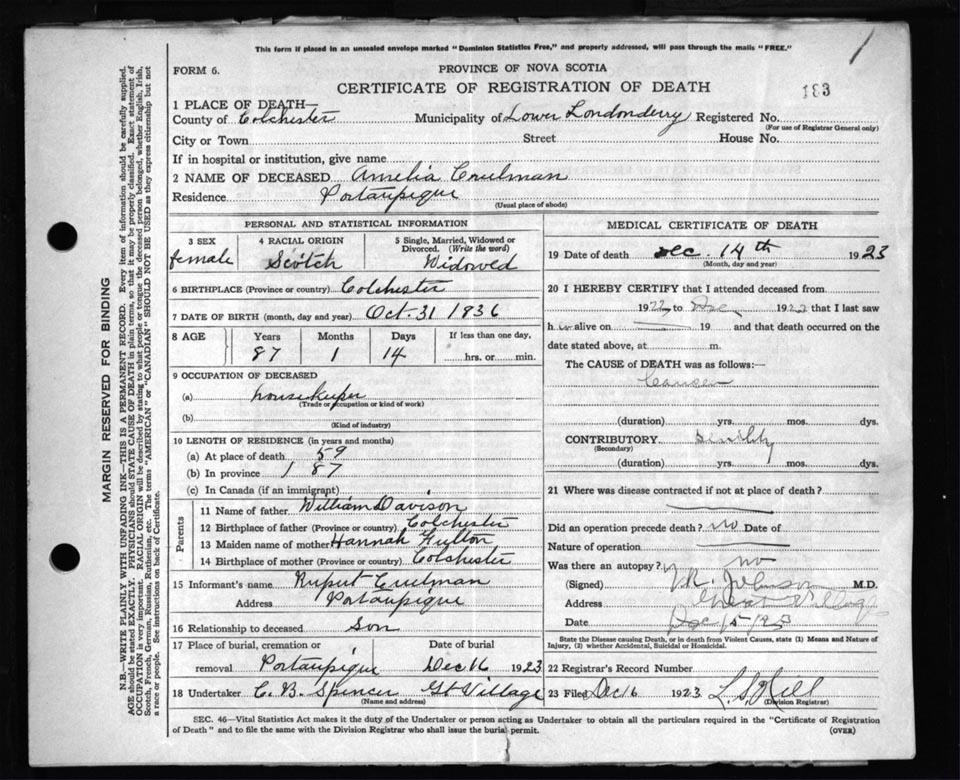 This form if placed in an unsealed envelope marked "Dominion Statistics Free," and properly addressed, will pass through the mails "FREE."
FORM 6.
PROVINCE OF NOVA SCOTIA
CERTIFICATE OF REGISTRATION OF DEATH
183
1 PLACE OF DEATH—
County of Colchester Municipality of Lower Londonderry Registered No.
(For use of Registrar General only)
City or Town Street House No.
If in hospital or institution, give name
2 NAME OF DECEASED Amelia Crulman
Residence Portaupique
(Usual place of abode)
PERSONAL AND STATISTICAL INFORMATION
3 SEX
female
4 RACIAL ORIGIN
Scotch
5 Single, Married, Widowed or
Divorced. (Write the word)
Widowed
6 BIRTHPLACE (Province or country) Colchester
7 DATE OF BIRTH (month, day and year) Oct. 31 1836
8 AGE Years Months Days If less than one day,
87 1 14 hrs. or min.
9 OCCUPATION OF DECEASED
(a) housekeeper
(Trade or occupation or kind of work)
(b)
(Kind of industry)
10 LENGTH OF RESIDENCE (in years and months)
(a) At place of death 59
(b) In province 87
(c) In Canada (if an immigrant)
Parents
11 Name of father William Davison
12 Birthplace of father (Province or country) Colchester
13 Maiden name of mother Hannah Fulton
14 Birthplace of mother (Province or country) Colchester
15 Informant's name Rupert Crulman
Address Portaupique
16 Relationship to deceased Son
17 Place of burial, cremation or Date of burial
removal Portaupique Dec 16 1923
18 Undertaker C. B. Spencer Gt Village
(Name and address)
MEDICAL CERTIFICATE OF DEATH
19 Date of death Dec. 14th 1923
(Month, day and year)
20 I HEREBY CERTIFY that I attended deceased from
1922 to Dec 1923 that I last saw
h er alive on 19 and that death occurred on the
date stated above, at m.
The CAUSE of DEATH was as follows:
Cancer
(duration) yrs. mos. dys.
CONTRIBUTORY Senility
(Secondary)
(duration) yrs. mos. dys.
21 Where was disease contracted if not at place of death?
Did an operation precede death? no Date of
Nature of operation
Was there an autopsy? no
(Signed) Johnson M.D.
Address Great Village
Date Dec 15/23
State the Disease causing Death, or in death from Violent Causes, state (1) Means and Nature of
Injury, (2) whether Accidental, Suicidal or Homicidal.
22 Registrar's Record Number
23 Filed Dec 16 1923 Hill
(Division Registrar)
SEC. 46—Vital Statistics Act makes it the duty of the Undertaker or person acting as Undertaker to obtain all the particulars required in the "Certificate of Registration
of Death" and to file the same with the Division Registrar who shall issue the burial permit.
(OVER)
MARGIN RESERVED FOR BINDING
N.B.—WRITE PLAINLY WITH UNFADING INK—THIS IS A PERMANENT RECORD. Every item of information should be carefully supplied.
AGE should be stated EXACTLY. PHYSICIANS should STATE CAUSE OF DEATH in plain terms, so that it may be properly classified. Exact statement of
OCCUPATION is very important. RACIAL ORIGIN will be described by stating to what people or tongue the deceased person belonged, whether English, Irish,
Scotch, French, German, Russian, Ruthenian, etc. The terms "AMERICAN" or "CANADIAN" SHOULD NOT BE USED as they express citizenship but not
a race or people. See instructions on back of Certificate.